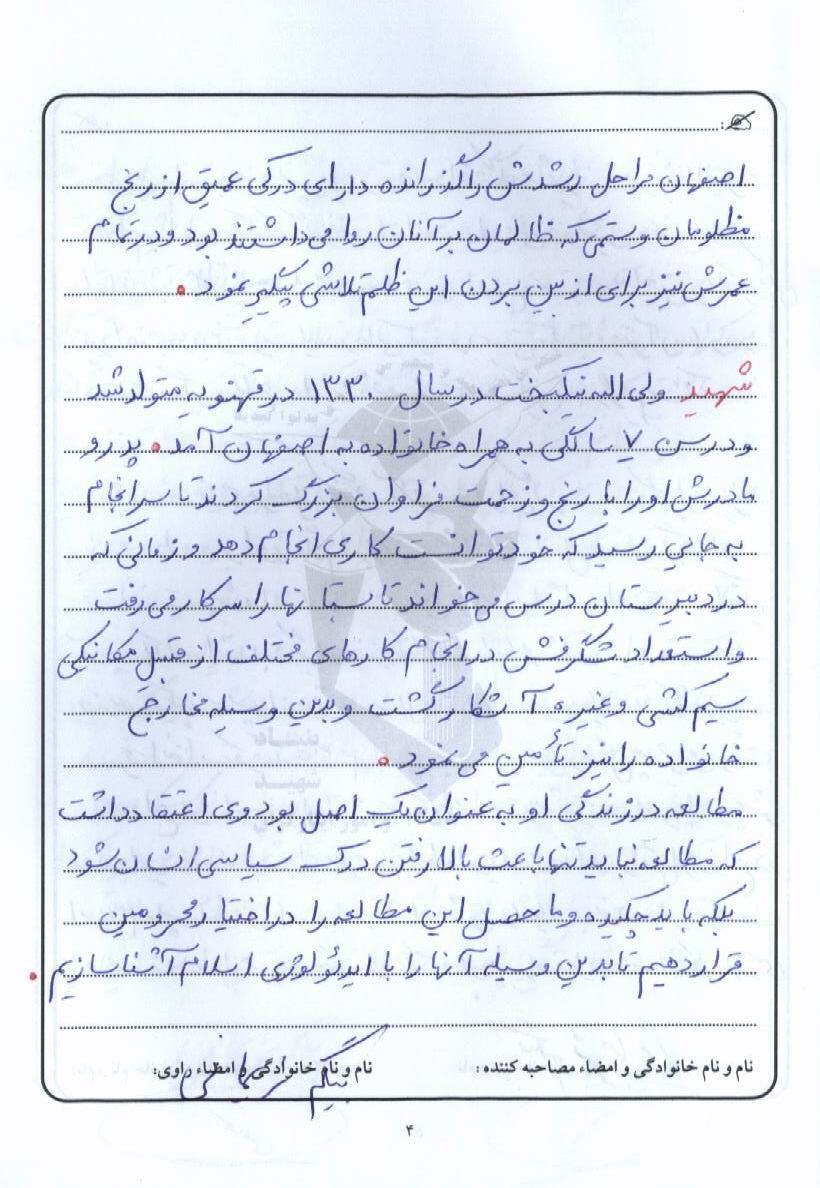 اصفهان مراحل رشدش را گذرانده دارای درکی عمیق از رنج
مظلومان وستمی که ظالمان بر آنان روا می داشتند بود و در تمام
عمرش نیز برای از بین بردن این ظلم تلاشی پیگیر نمود.
شهید ولی اله نیکبخت در سال ۱۳۳۰ در قهنویه متولد شد
و در سن ۷ سالگی به همراه خانواده به اصفهان آمد. پدر و
مادرش او را با رنج و زحمت فراوان بزرگ کردند تا سرانجام
به جایی رسید که خود توانست کاری انجام دهد و زمانی که
در دبیرستان درس می خواند تابستانها را سر کار می رفت
و استعداد شگرفش در انجام کارهای مختلف از قبیل مکانیکی
سیم کشی و غیره آشکار گشت و بدین وسیله مخارج
خانواده را نیز تأمین می نمود.
مطالعه در زندگی او به عنوان یک اصل بود وی اعتقاد داشت
که مطالعه نباید تنها باعث بالا رفتن درک سیاسی انسان شود
بلکه باید چکیده و ما حصل این مطالعه را در اختیار محرومین
قرار دهیم تا بدین وسیله آنها را با ایدئولوژی اسلام آشنا سازیم.
نام و نام خانوادگی و امضاء مصاحبه کننده :
نام و نام خانوادگی و امضاء راوی:
۴